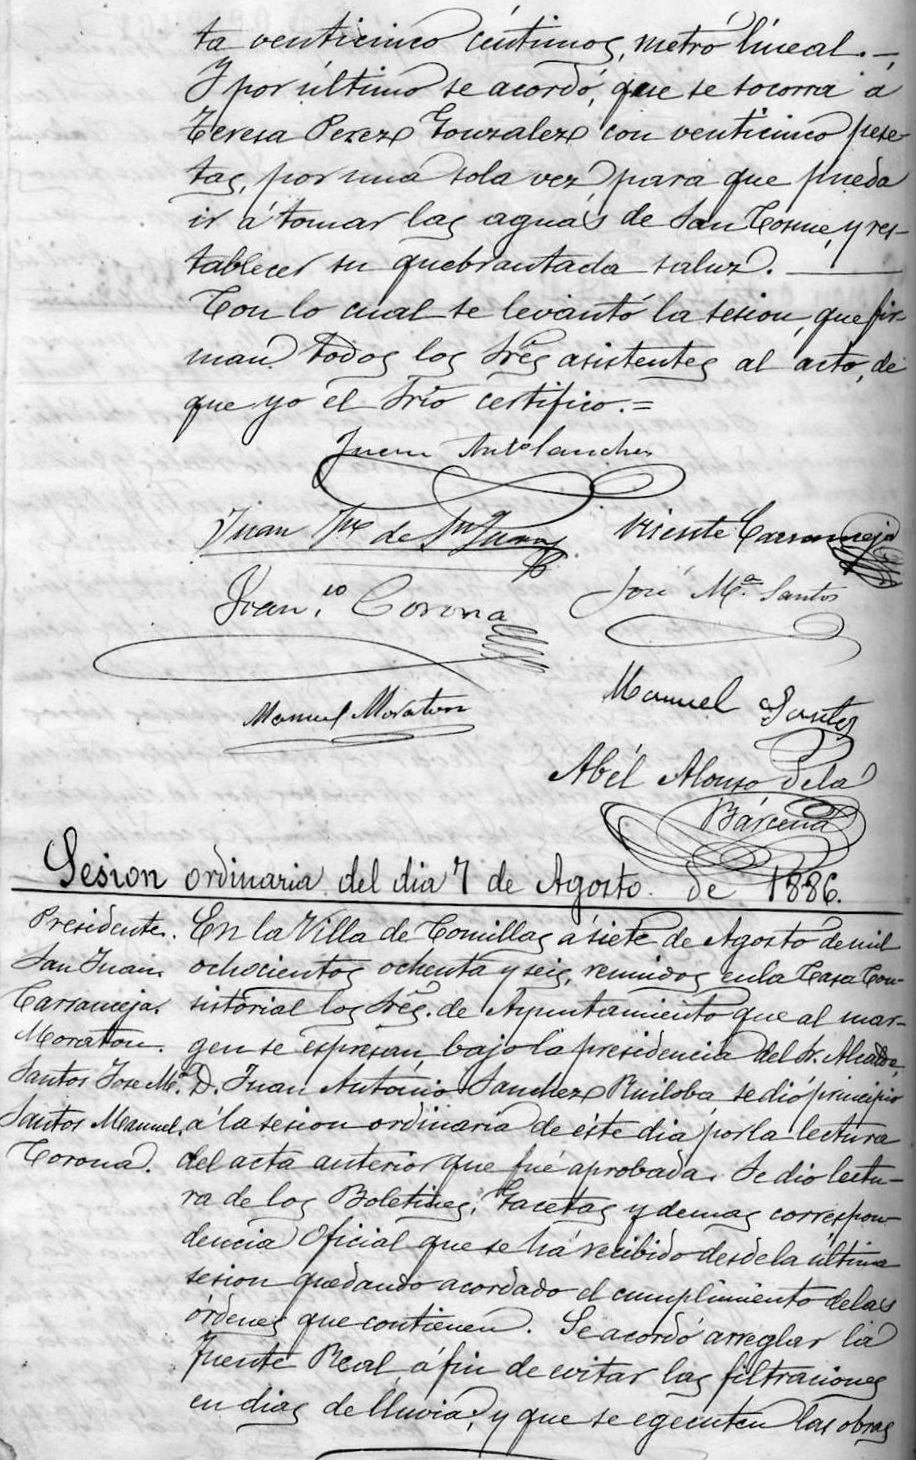 ta venticinco céntimos, metro líneal.—
Y por último se acordó, que se socorra á
Teresa Perez Gonzalez con venticinco pese-
tas, por una sola vez para que pueda
ir á tomar las aguas de San Cosme, y res-
tablecer su quebrantada saluz.
Con lo cual se levantó la sesion, que fir-
man todos los Sres asistentes al acto, de
que yo el Srio certifico.=
Juan Anto Sanchez
Juan
de Sn Juan
Vicente Carranceja
Franco Corona
José Ma. Santos
Manuel Moraton
Manuel Santos
Abél Alonso de la
Bárcena
Sesion ordinaria del dia 7 de Agosto de 1886.
Presidente.
San Juan.
Carranceja.
Moraton.
Santos Jose Ma.
Santos Manuel.
Corona.
En la Villa de Comillas á siete de Agosto de mil
ochocientos ochenta y seis, reunidos en la Casa Con-
sistorial los Sres. de Ayuntamiento que al mar-
gen se espresan bajo la presidencia del Sr. Alcalde,
D. Juan Antonio Sanchez Ruiloba se dió principio
á la sesion ordinaria de éste dia por la lectura
del acta anterior que fué aprobada. Se dió lectu-
ra de los Boletines, Gacetas y demas correspon-
dencia Oficial que se há recibido desde la última
sesion quedando acordado el cumplimiento de las
órdenes que contienen. Se acordó arreglar la
Fuente Real á fin de evitar las filtraciones
en dias de lluvia, y que se egecuten las obras